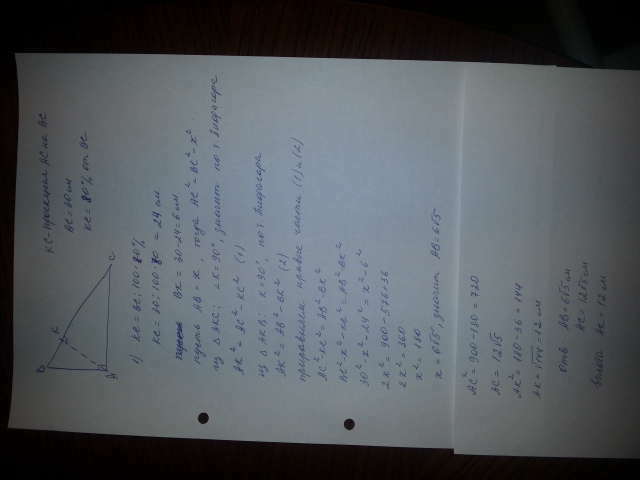 KC-проекция AC на BC
BC=30 см
KC=80% от BC
B
K
A
C
1) KC=BC:100·80%
KC=30:100·80=24 см
BK=30-24=6 см
пусть AB=x, тогда AC²=BC²-x²
из △AKC: ∠K=90°, значит по т. Пифагора
AK²=AC²-KC² (1)
из △AKB: K=90°, по т. Пифагора
AK²=AB²-BK² (2)
приравняем правые части (1) и (2)
AC²-KC²=AB²-BK²
BC²-x²-KC²=AB²-BK²
30²-x²-24²=x²-6²
2x²=900-576+36
2x²=360
x²=180
x=6√5, значит AB=6√5
AC²=900-180=720
AC=12√5
AK²=180-36=144
AK=√144=12 см
Отв AB=6√5 см
AC=12√5 см
высота AK=12 см